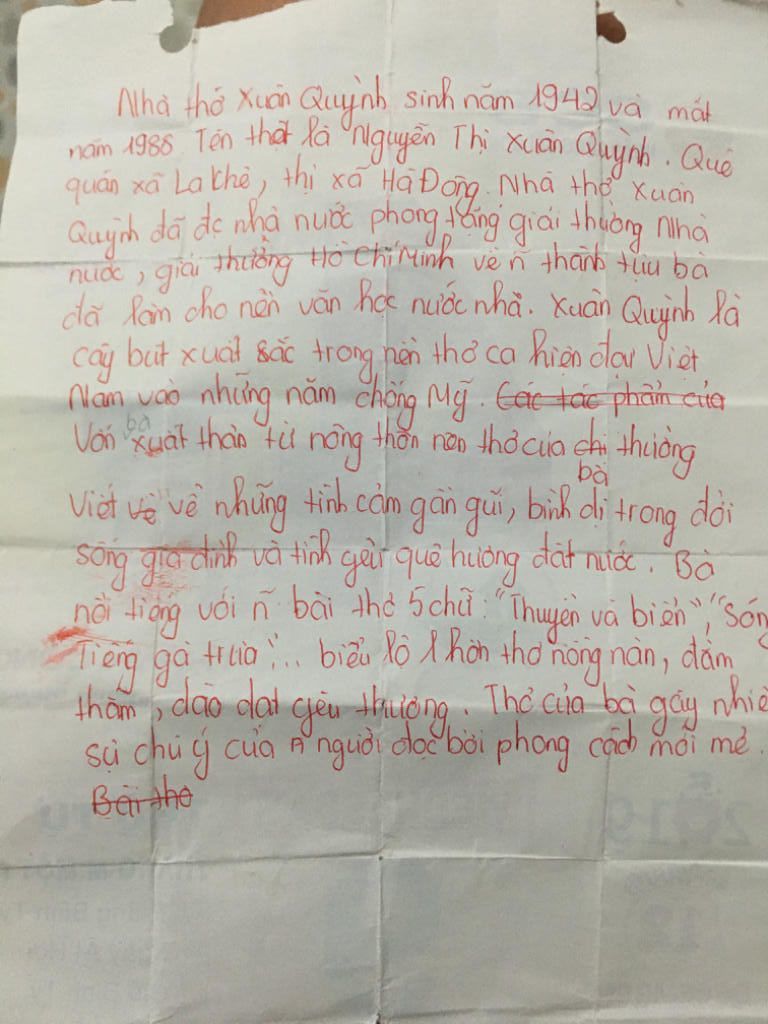 Nhà thơ Xuân Quỳnh sinh năm 1942 và mất
năm 1988 Tên thật là Nguyễn Thị Xuân Quỳnh. Quê
quán xã La Khê, thị xã Hà Đông. Nhà thơ Xuân
Quỳnh đã đc nhà nước phong tặng giải thưởng Nhà
nước, giải thưởng Hồ Chí Minh về ñ thành tựu bà
đã làm cho nền văn học nước nhà. Xuân Quỳnh là
cây bút xuất sắc trong nền thơ ca hiện đại Việt
Nam vào những năm chống Mỹ. Các tác phẩm của
Vốn bà xuất thân từ nông thôn nên thơ của chị bà thường
Viết về về những tình cảm gần gũi, bình dị trong đời
sống gia đình và tình yêu quê hương đất nước. Bà
nổi tiếng với ñ bài thơ 5 chữ: "Thuyền và biển", "Són
Tiếng gà trưa"... biểu lộ 1 hồn thơ nồng nàn, đằm
thắm, dào dạt yêu thương. Thơ của bà gây nhiề
sự chú ý của ñ người đọc bởi phong cách mới mẻ.
Bài thơ